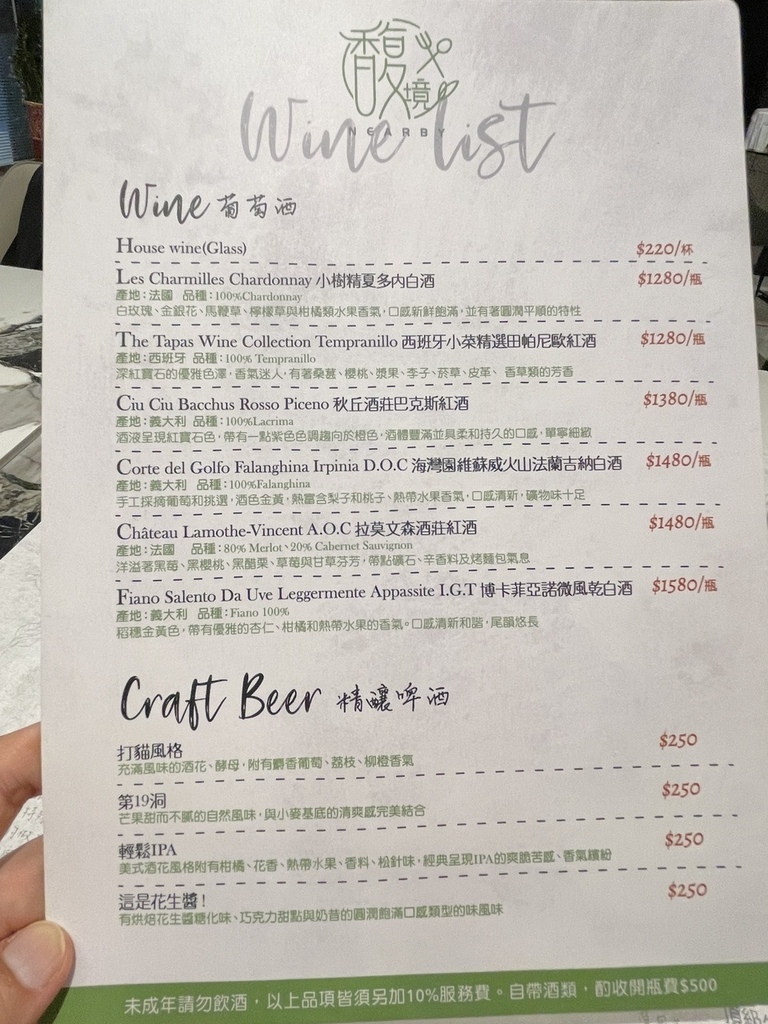 馥境
NEARBY
Wine list
Wine 葡萄酒
House wine(Glass) $220/杯
Les Charmilles Chardonnay 小樹精夏多內白酒 $1280/瓶
產地:法國 品種:100%Chardonnay
白玫瑰、金銀花、馬鞭草、檸檬草與柑橘類水果香氣,口感新鮮飽滿,並有著圓潤平順的特性
The Tapas Wine Collection Tempranillo 西班牙小菜精選田帕尼歐紅酒 $1280/瓶
產地:西班牙 品種:100% Tempranillo
深紅寶石的優雅色澤,香氣迷人,有著桑葚、櫻桃、漿果、李子、菸草、皮革、 香草類的芳香
Ciu Ciu Bacchus Rosso Piceno 秋丘酒莊巴克斯紅酒 $1380/瓶
產地:義大利 品種:100%Lacrima
酒液呈現紅寶石色,帶有一點紫色色調趨向於橙色,酒體豐滿並具柔和持久的口感,單寧細緻
Corte del Golfo Falanghina Irpinia D.O.C 海灣園維蘇威火山法蘭吉納白酒 $1480/瓶
產地:義大利 品種:100%Falanghina
手工採摘葡萄和挑選,酒色金黃,熱富含梨子和桃子、熱帶水果香氣,口感清新,礦物味十足
Château Lamothe-Vincent A.O.C 拉莫文森酒莊紅酒 $1480/瓶
產地:法國 品種:80% Merlot、20% Cabernet Sauvignon
洋溢著黑莓、黑櫻桃、黑醋栗、草莓與甘草芬芳,帶點礦石、辛香料及烤麵包氣息
Fiano Salento Da Uve Leggermente Appassite I.G.T 博卡菲亞諾微風乾白酒 $1580/瓶
產地:義大利 品種:Fiano 100%
稻穗金黃色,帶有優雅的杏仁、柑橘和熱帶水果的香氣。口感清新和諧,尾韻悠長
Craft Beer 精釀啤酒
打貓風格 $250
充滿風味的酒花、酵母,附有麝香葡萄、荔枝、柳橙香氣
第19洞 $250
芒果甜而不膩的自然風味,與小麥基底的清爽感完美結合
輕鬆IPA $250
美式酒花風格附有柑橘、花香、熱帶水果、香料、松針味,經典呈現IPA的爽脆苦感、香氣繽紛
這是花生醬! $250
有烘焙花生醬糖化味、巧克力甜點與奶昔的圓潤飽滿口感類型的味風味
未成年請勿飲酒,以上品項皆須另加10%服務費。自帶酒類,酌收開瓶費$500